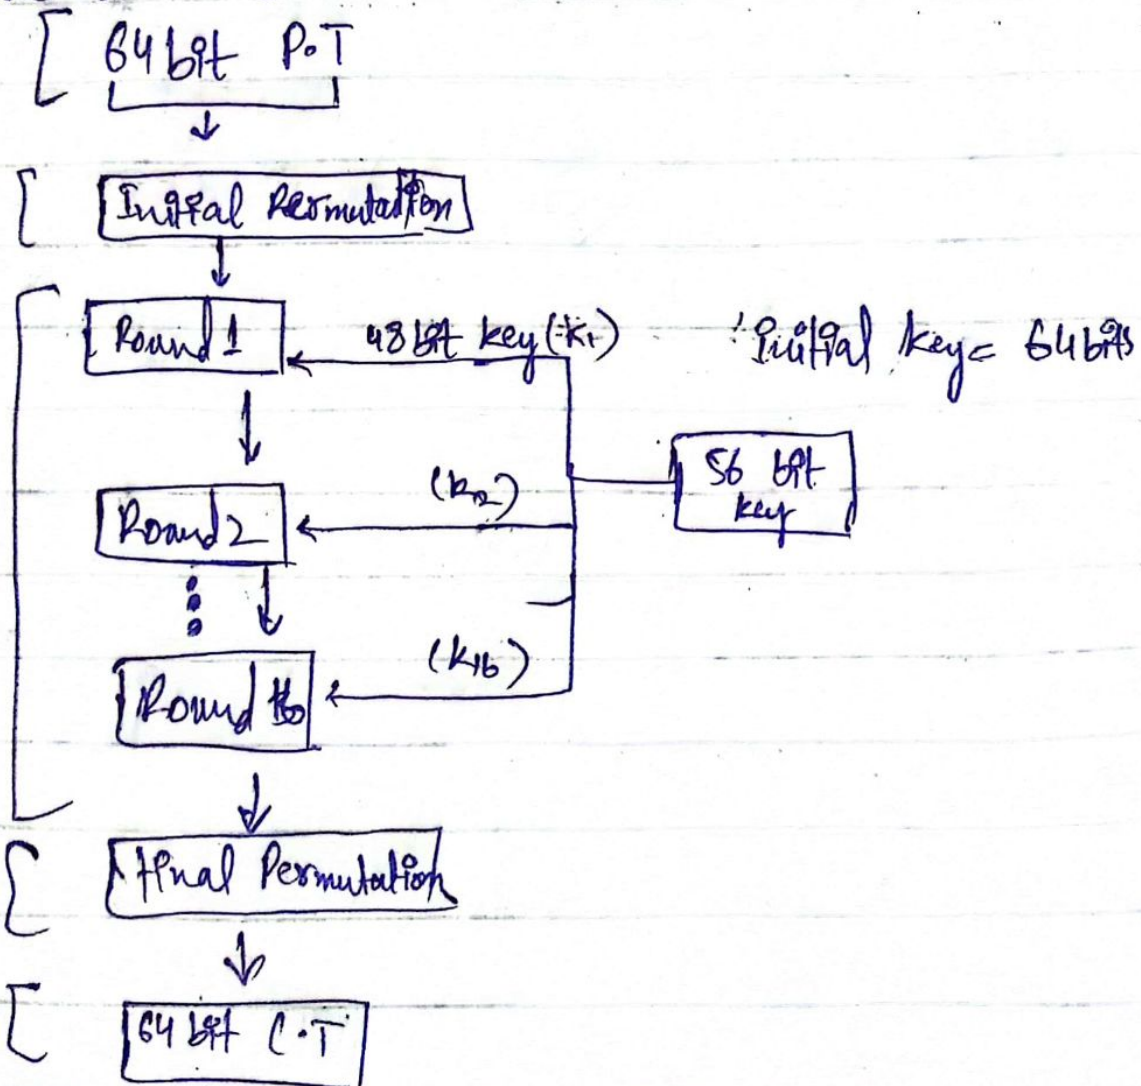 64 bit P.T
Initial Permutation
Round 1
48 bit key (K1)
Initial key = 64 bits
56 bit
key
(K2)
Round 2
(K16)
Round 16
Final Permutation
64 bit C.T